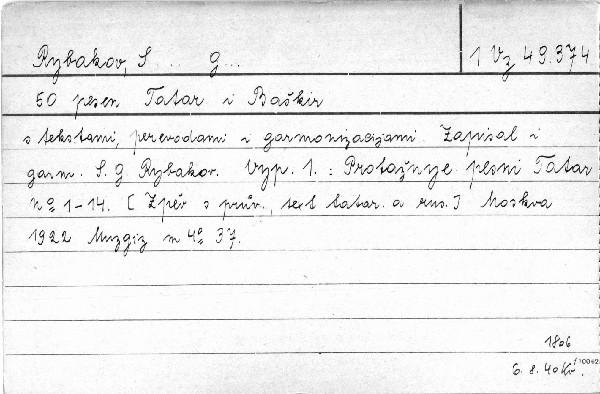 Rybakov, S... G... 1 Vz 49.374
50 pesen Tatar i Baškir
s tekstami, perevodami i garmonizacijami. Zapisal i
garm. S. G Rybakov. Vyp. 1. : Protažnyje pesni Tatar
No 1-14. [ Zpěv s prův., text tatar. a rus.] Moskva
1922 Muzgiz m 4o 37.
1806
6. 8. 40 Kč.